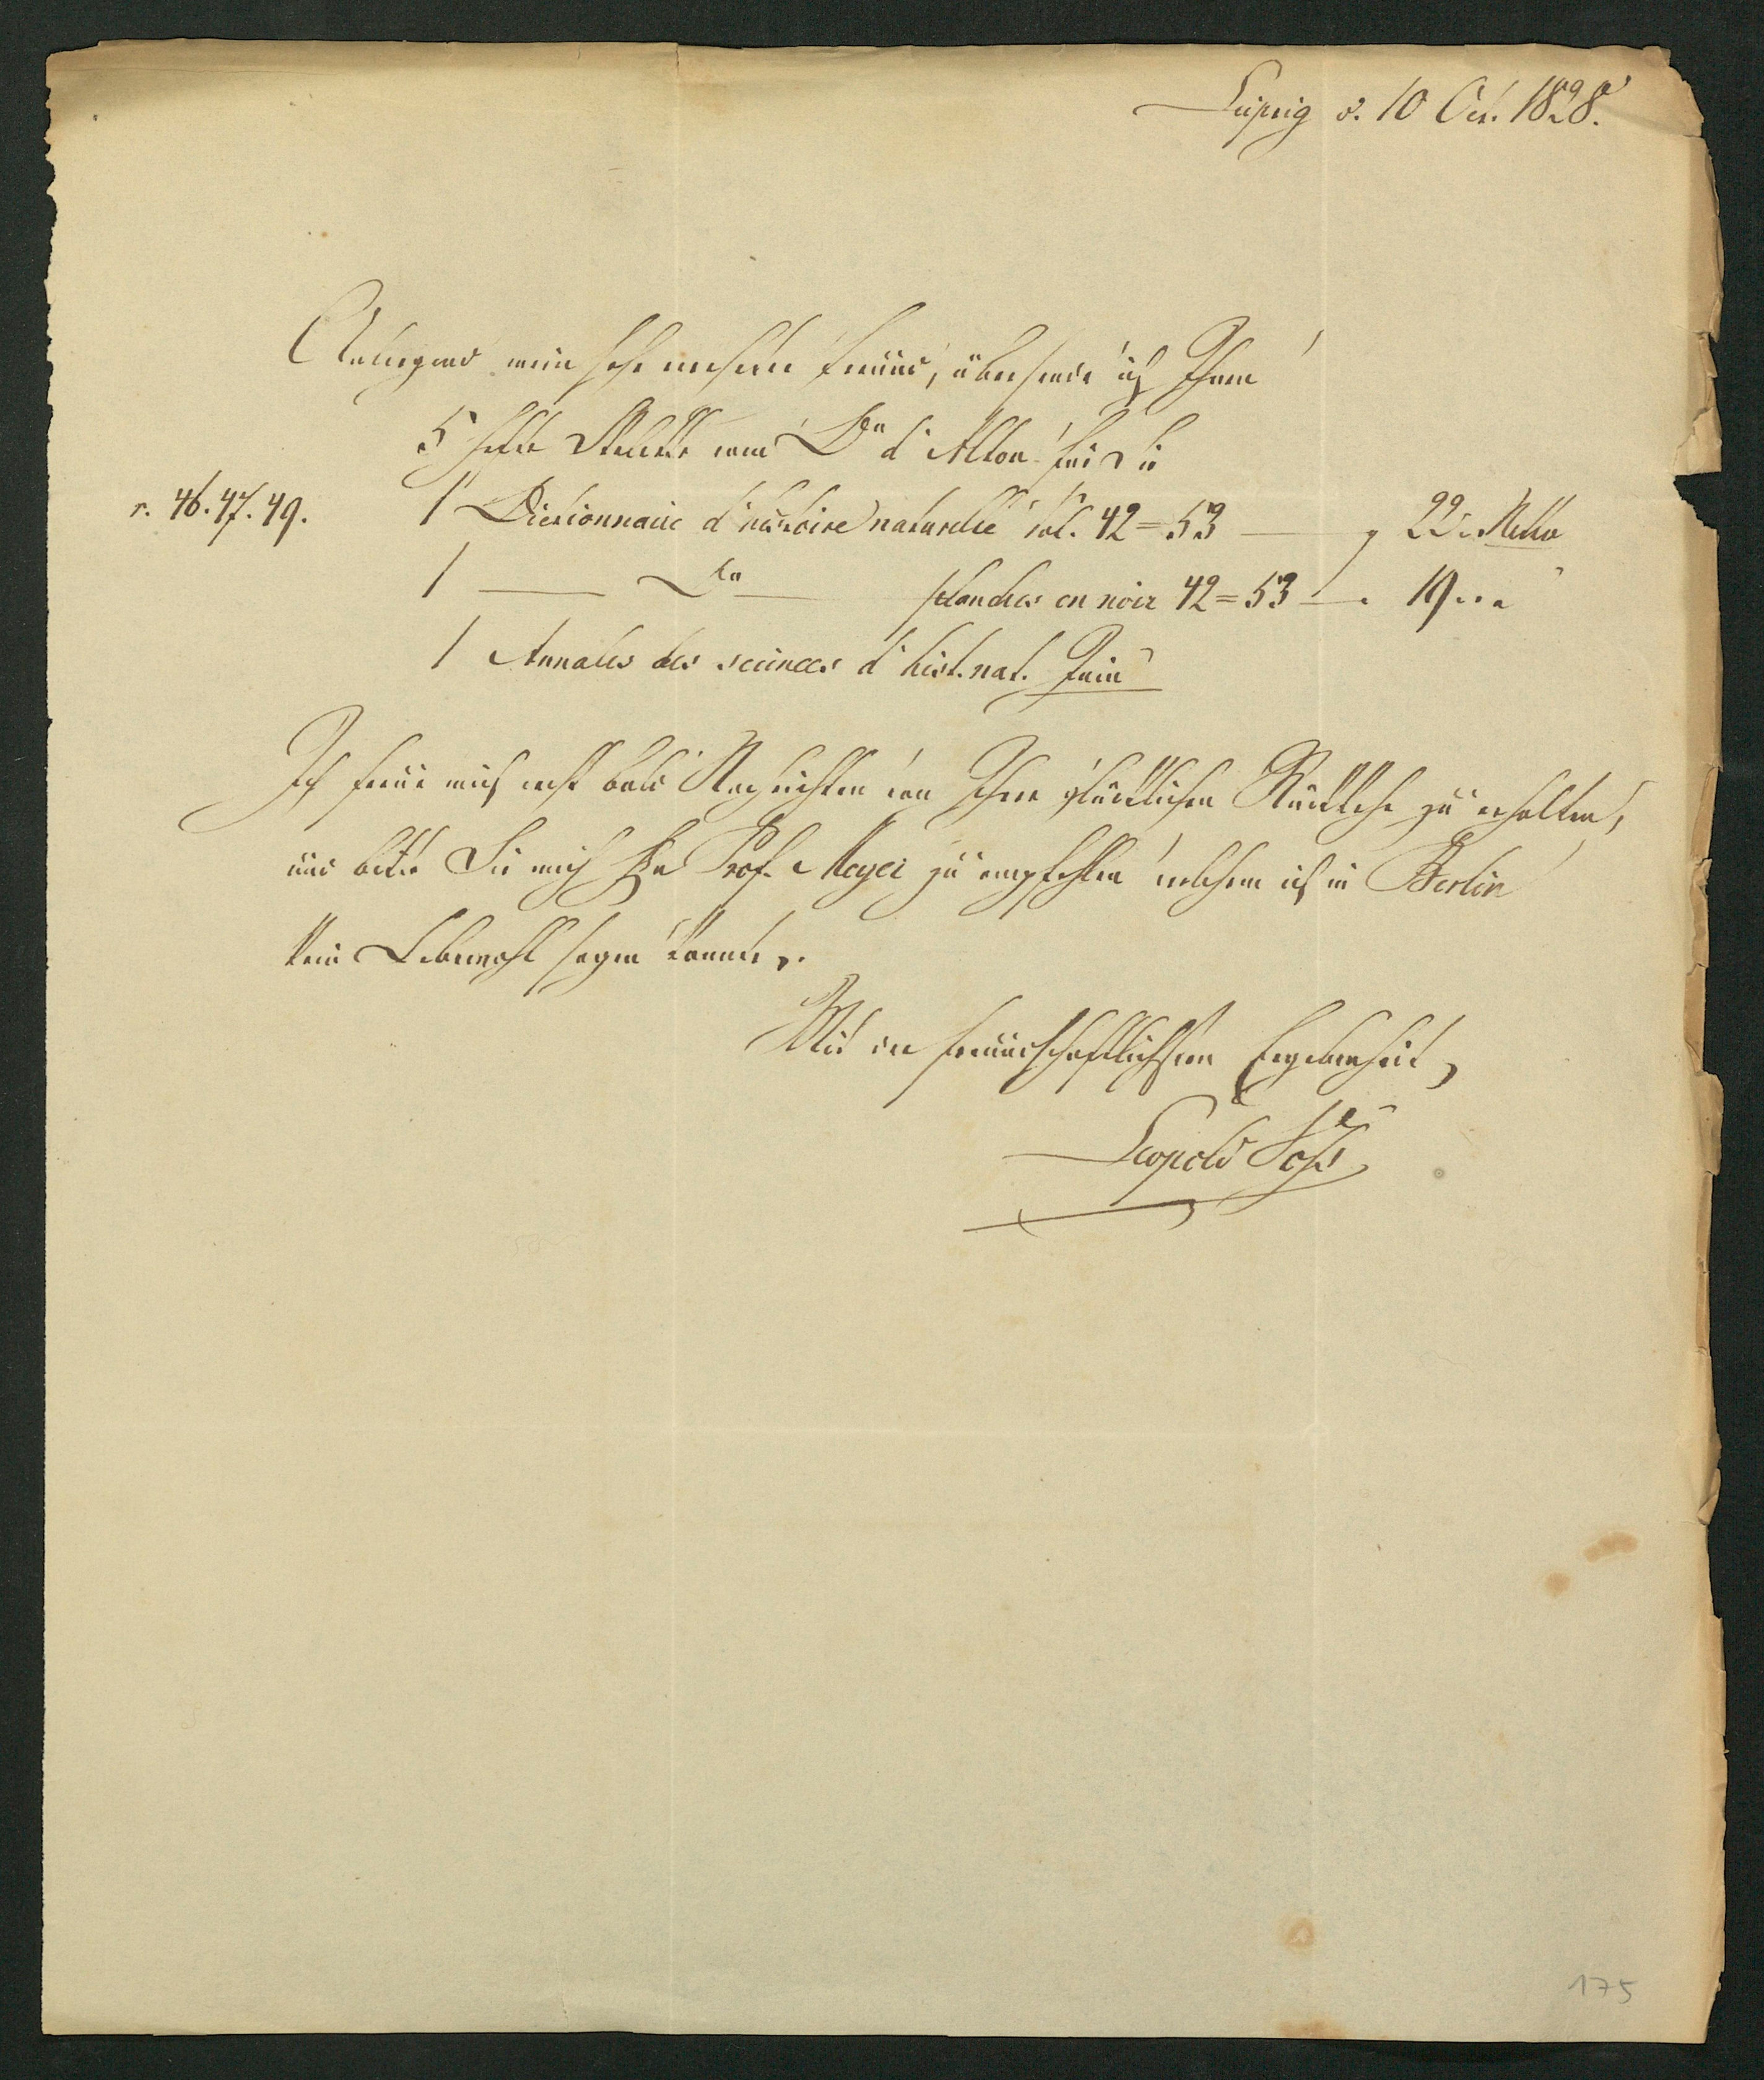 Leipzig d. 10 Oct. 1828.
Anliegend mein sehr verehrter Freund, übersende ich Ihnen
5 Hefte Skelette von Dr d'Alton für Sie
v. 46. 47. 49. 1 Dictionnaire d'histoire naturelle vol. 42=53 — 22 Netto
1 — do — planches en noir 42=53 — 19
1 Annales des sciences d'hist. nat. Juin
Ich freue mich recht bald Nachrichten von Ihrer glücklichen Rückkehr zu erhalten,
und bitte Sie mich Hrn Prof. Meyer zu empfehlen welchem ich in Berlin
kein Lebewohl sagen konnte.
Mit der freundschaftlichsten Ergebenheit,
Leopold Voß
175